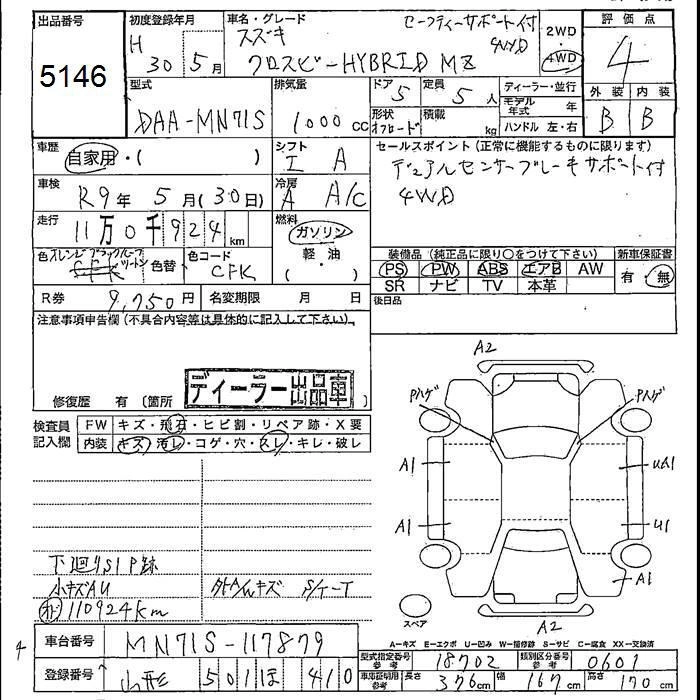 出品番号
5146
初度登録年月
H 30 5月
車名・グレード
スズキ
セーフティーサポート付 4WD
クロスビーHYBRID MZ
2WD
4WD
評価点
4
外装 内装
B B
型式
DAA-MN71S
排気量
1000 cc
ドア
5
定員
5 人
形状
積載
kg
ディーラー・並行
モデル年式 年
ハンドル 左・右
車歴
自家用・( )
シフト
I A
セールスポイント (正常に機能するものに限ります)
デュアルセンサーブレーキサポート付
4WD
車検
R9年 5月(30日)
冷房
A A/C
走行
11万0千924km
燃料
ガソリン
軽・油
( )
色
オレンジ ブラックルーフ
ツートン
色替
色コード
CFK
装備品 (純正品に限り○をつけて下さい)
PS PW ABS エアB AW
SR ナビ TV 本革
新車保証書
有・無
R券 9,750円
名変期限 月 日
後日品
注意事項申告欄 (不具合内容等は具体的に記入して下さい)
修復歴 有 〔箇所
ディーラー出品車
検査員記入欄
FW キズ・飛石・ヒビ割・リペア跡・X要
内装 キズ・汚レ・コゲ・穴・スレ・キレ・破レ
A2
Pハゲ
Pハゲ
A1
UA1
A1
U1
A1
スペア
A2
下廻りS1P跡
小キズAU
110924km
A-キズ E-エクボ U-凹み W-補修跡 S-サビ C-腐食 XX-交換済
車台番号
MN71S-117879
登録番号
山形 501 ほ 410
型式指定番号 参考
18702
類別区分番号 参考
0601
車庫証明用 参考
長さ 376cm 幅 167cm 高さ 170cm